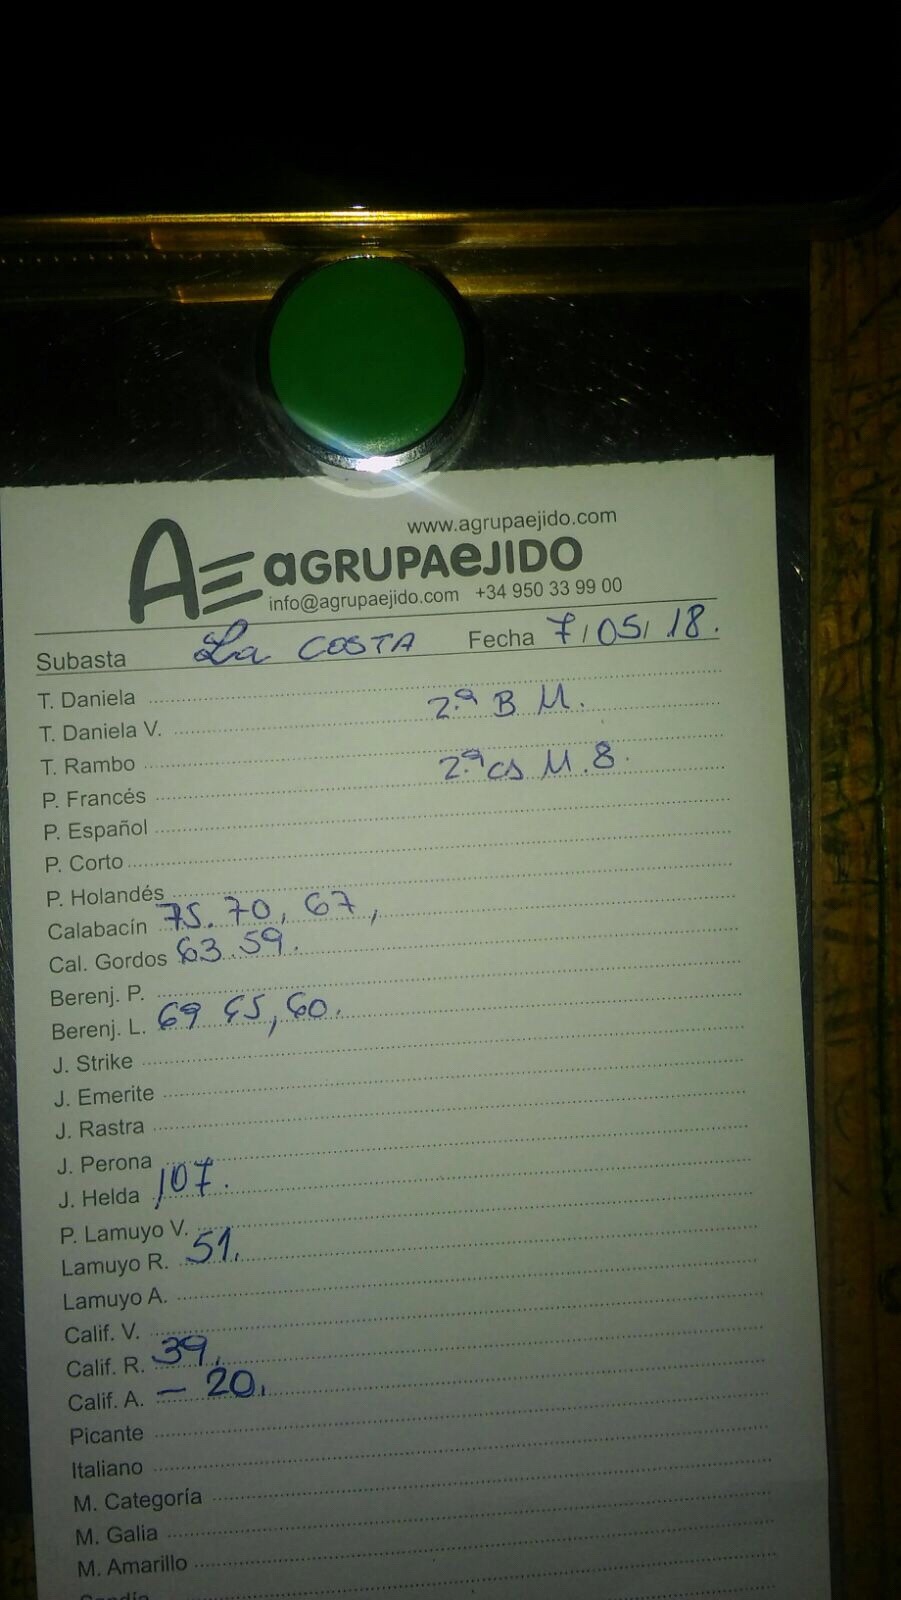 www.agrupaejido.com
AE aGRUPAeJIDO
info@agrupaejido.com +34 950 33 99 00
Subasta La COSTA Fecha 7/05/18.
T. Daniela
T. Daniela V. 2.ª B M.
T. Rambo
P. Francés 2.ª cs M.8.
P. Español
P. Corto
P. Holandés
Calabacín 75. 70, 67,
Cal. Gordos 63.59.
Berenj. P.
Berenj. L. 69 65, 60.
J. Strike
J. Emerite
J. Rastra
J. Perona
J. Helda 107.
P. Lamuyo V.
Lamuyo R. 51.
Lamuyo A.
Calif. V.
Calif. R. 39.
Calif. A. - 20.
Picante
Italiano
M. Categoría
M. Galia
M. Amarillo